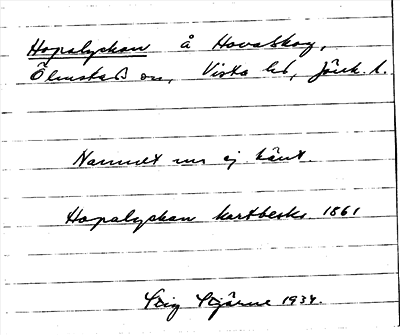 Hopalyckan å Hovaskog,
Ölmstads sn, Vista hd, Jönk. l.
Namnet nu ej känt.
Hopalyckan kartbeskr. 1861
Stig Stjärne 1934.